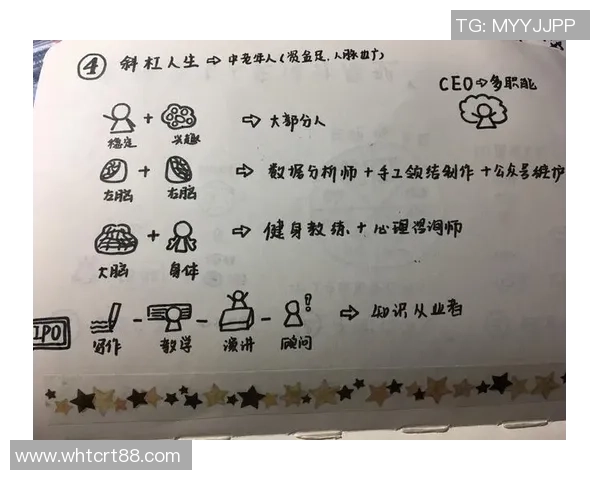 TG: MYYJJPP
④ 斜杠人生 ⇨ 中老年人(资金足,人脉广)
CEO⇨多职能
稳定 + 兴趣 ⇨ 大部分人
左脑 + 右脑 ⇨ 数据分析师+手工领结制作+公众号维护
大脑 + 身体 ⇨ 健身教练、+心理咨询师
IPO
写作 - 教学 - 演讲 - 顾问 ⇨ 知识从业者
www-whtcrt88.com